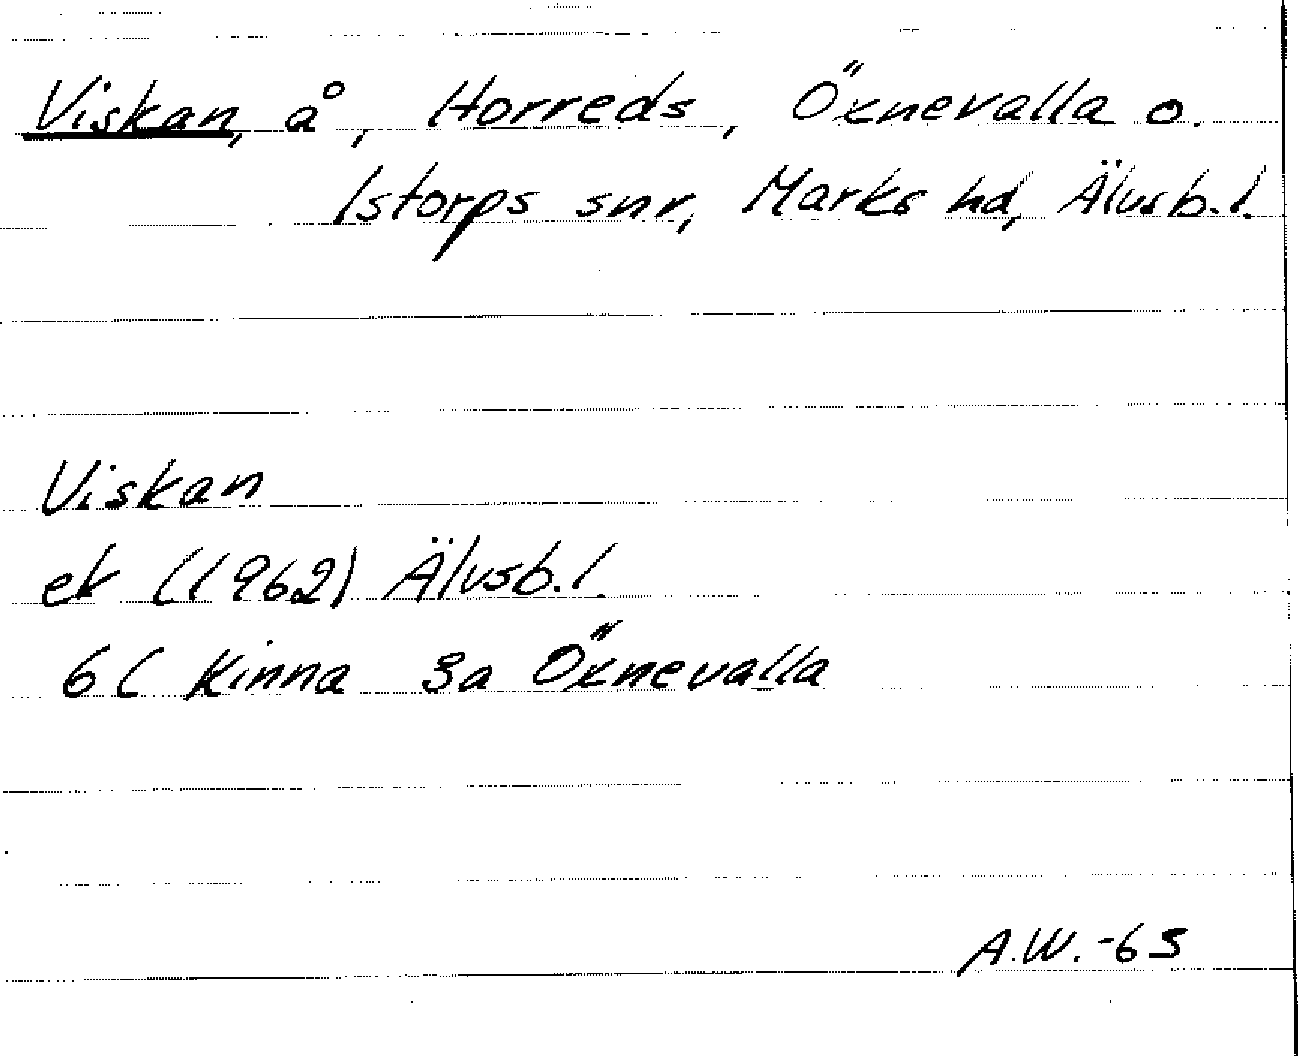 Viskan, å, Horreds, Öxnevalla o.
Istorps snr, Marks hd, Älvsb. l.
Viskan
ek (1962) Älvsb. l.
6C Kinna 3a Öxnevalla
A.W. -65